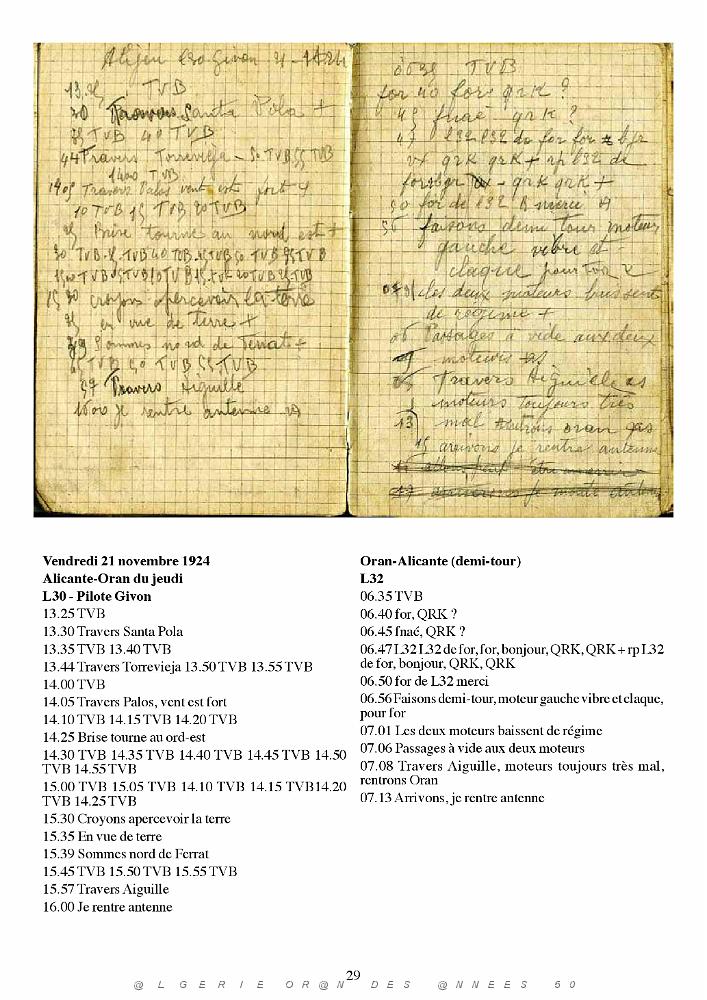 Alicante Oran Givon 21-11-24
13.25 TVB
30 Travers Santa Pola +
35 TVB 40 TVB
44 Travers Torrevieja - 50 TVB 55 TVB
1400 TVB
1405 Travers Palos vent est fort
10 TVB 15 TVB 20 TVB
25 Brise tourne au nord est +
30 TVB 35 TVB 40 TVB 45 TVB 50 TVB 55 TVB
1500 TVB 05 TVB 10 TVB 15 TVB 20 TVB 25 TVB
15 30 croyons apercevoir la terre
35 en vue de terre +
39 Sommes nord de Ferrat +
45 TVB 50 TVB 55 TVB
57 Travers Aiguille
1600 je rentre antenne
0635 TVB
for 40 for qrk ?
45 fnaé - qrk ?
47 l32 l32 de for for bjr
qrk qrk + rp l32 de
for bjr - qrk qrk +
50 for de l32 merci
56 faisons demi tour moteur
gauche vibre et
claque pour for
0701 les deux moteurs baissent
de régime +
06 Passages à vide aux deux
moteurs as
08 Travers Aiguille as
moteurs toujours très
mal rentrons oran as
13
arrivons je rentre antenne
Vendredi 21 novembre 1924
Alicante-Oran du jeudi
L30 - Pilote Givon
13.25 TVB
13.30 Travers Santa Pola
13.35 TVB 13.40 TVB
13.44 Travers Torrevieja 13.50 TVB 13.55 TVB
14.00 TVB
14.05 Travers Palos, vent est fort
14.10 TVB 14.15 TVB 14.20 TVB
14.25 Brise tourne au ord-est
14.30 TVB 14.35 TVB 14.40 TVB 14.45 TVB 14.50
TVB 14.55 TVB
15.00 TVB 15.05 TVB 14.10 TVB 14.15 TVB14.20
TVB 14.25 TVB
15.30 Croyons apercevoir la terre
15.35 En vue de terre
15.39 Sommes nord de Ferrat
15.45 TVB 15.50 TVB 15.55 TVB
15.57 Travers Aiguille
16.00 Je rentre antenne
Oran-Alicante (demi-tour)
L32
06.35 TVB
06.40 for, QRK ?
06.45 fnaé, QRK ?
06.47 L32 L32 de for, for, bonjour, QRK, QRK + rp L32
de for, bonjour, QRK, QRK
06.50 for de L32 merci
06.56 Faisons demi-tour, moteur gauche vibre et claque,
pour for
07.01 Les deux moteurs baissent de régime
07.06 Passages à vide aux deux moteurs
07.08 Travers Aiguille, moteurs toujours très mal,
rentrons Oran
07.13 Arrivons, je rentre antenne
29
@LGERIE OR@N DES @NNEES 50